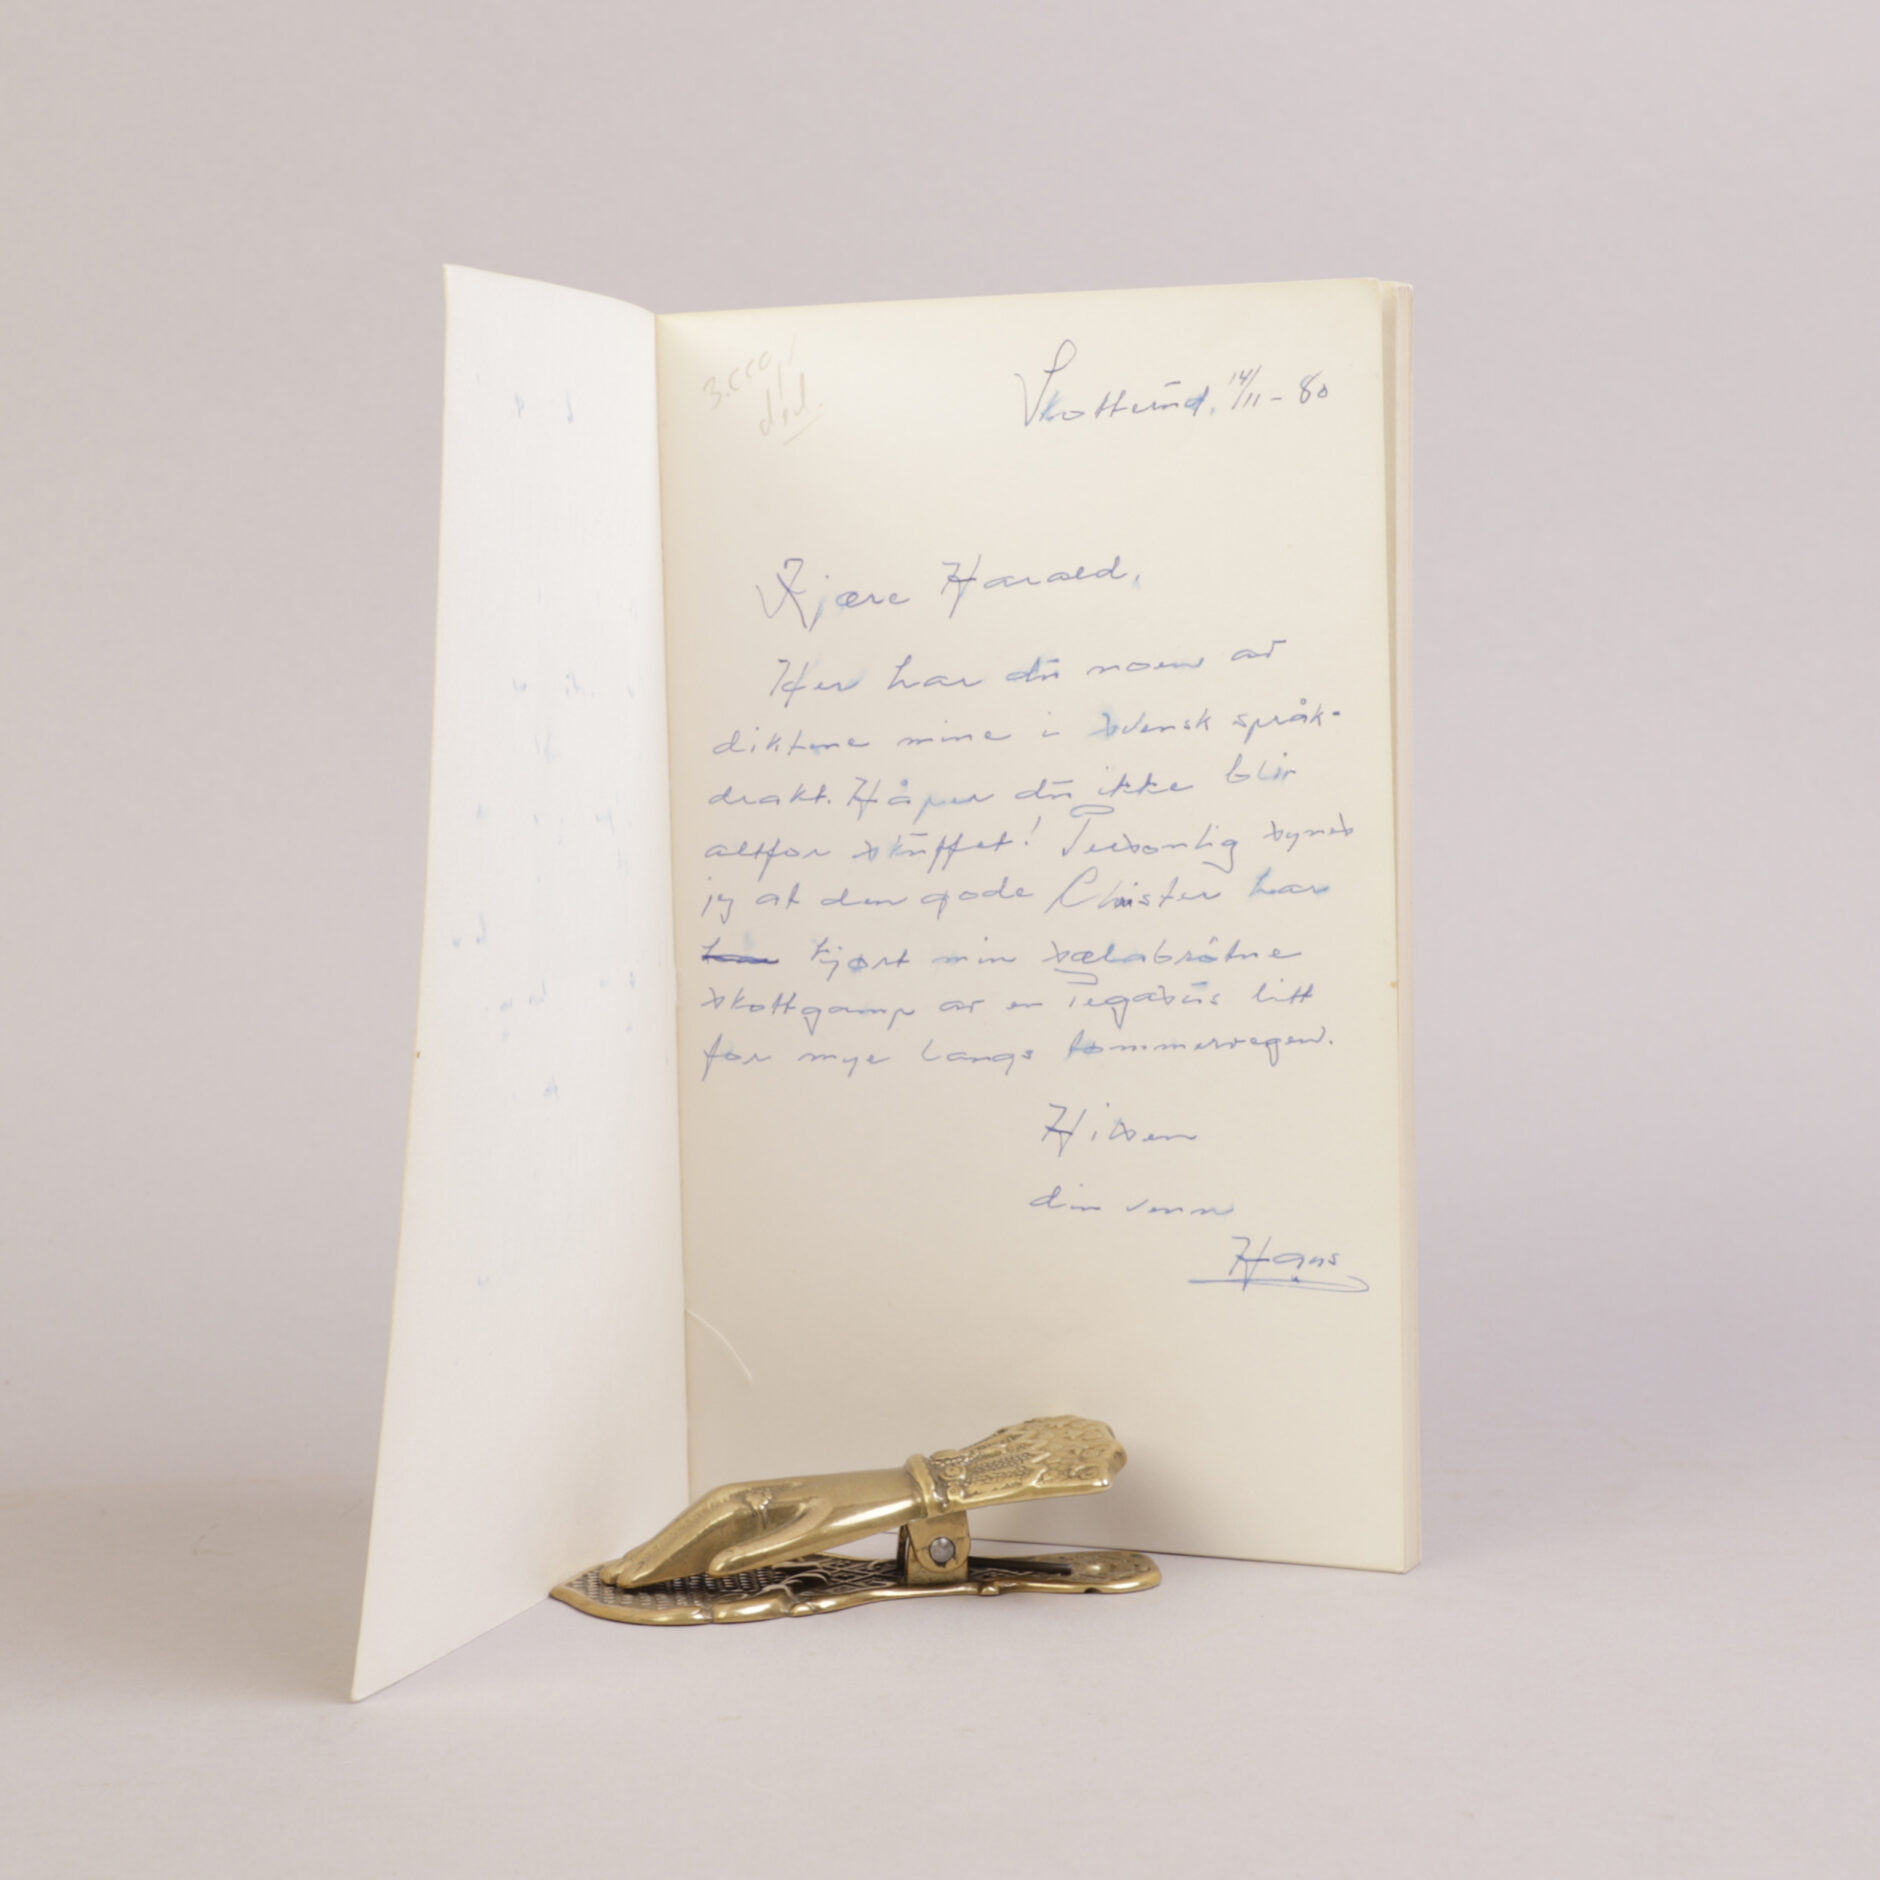 3.000,-
ded.
Skotterud, 14/11 - 80
Kjære Harald,
Her har du noen av
diktene mine i svensk språk-
drakt. Håper du ikke blir
altfor skuffet! Personlig synes
jeg at den gode Christer har
har kjørt min sælabrotne
skottgamp av en Pegasus litt
for mye langs tømmervegen.
Hilsen
din venn
Hans